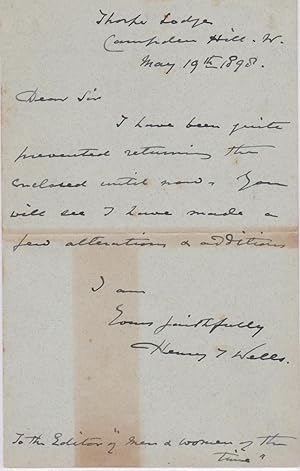 Thorpe Lodge
Campden Hill. W.
May 19th 1898.
Dear Sir
I have been quite
prevented returning the
enclosed until now. You
will see I have made a
few alterations & additions
I am
Yours faithfully
Henry T Wells.
To the Editor of "Men & women of the
time"